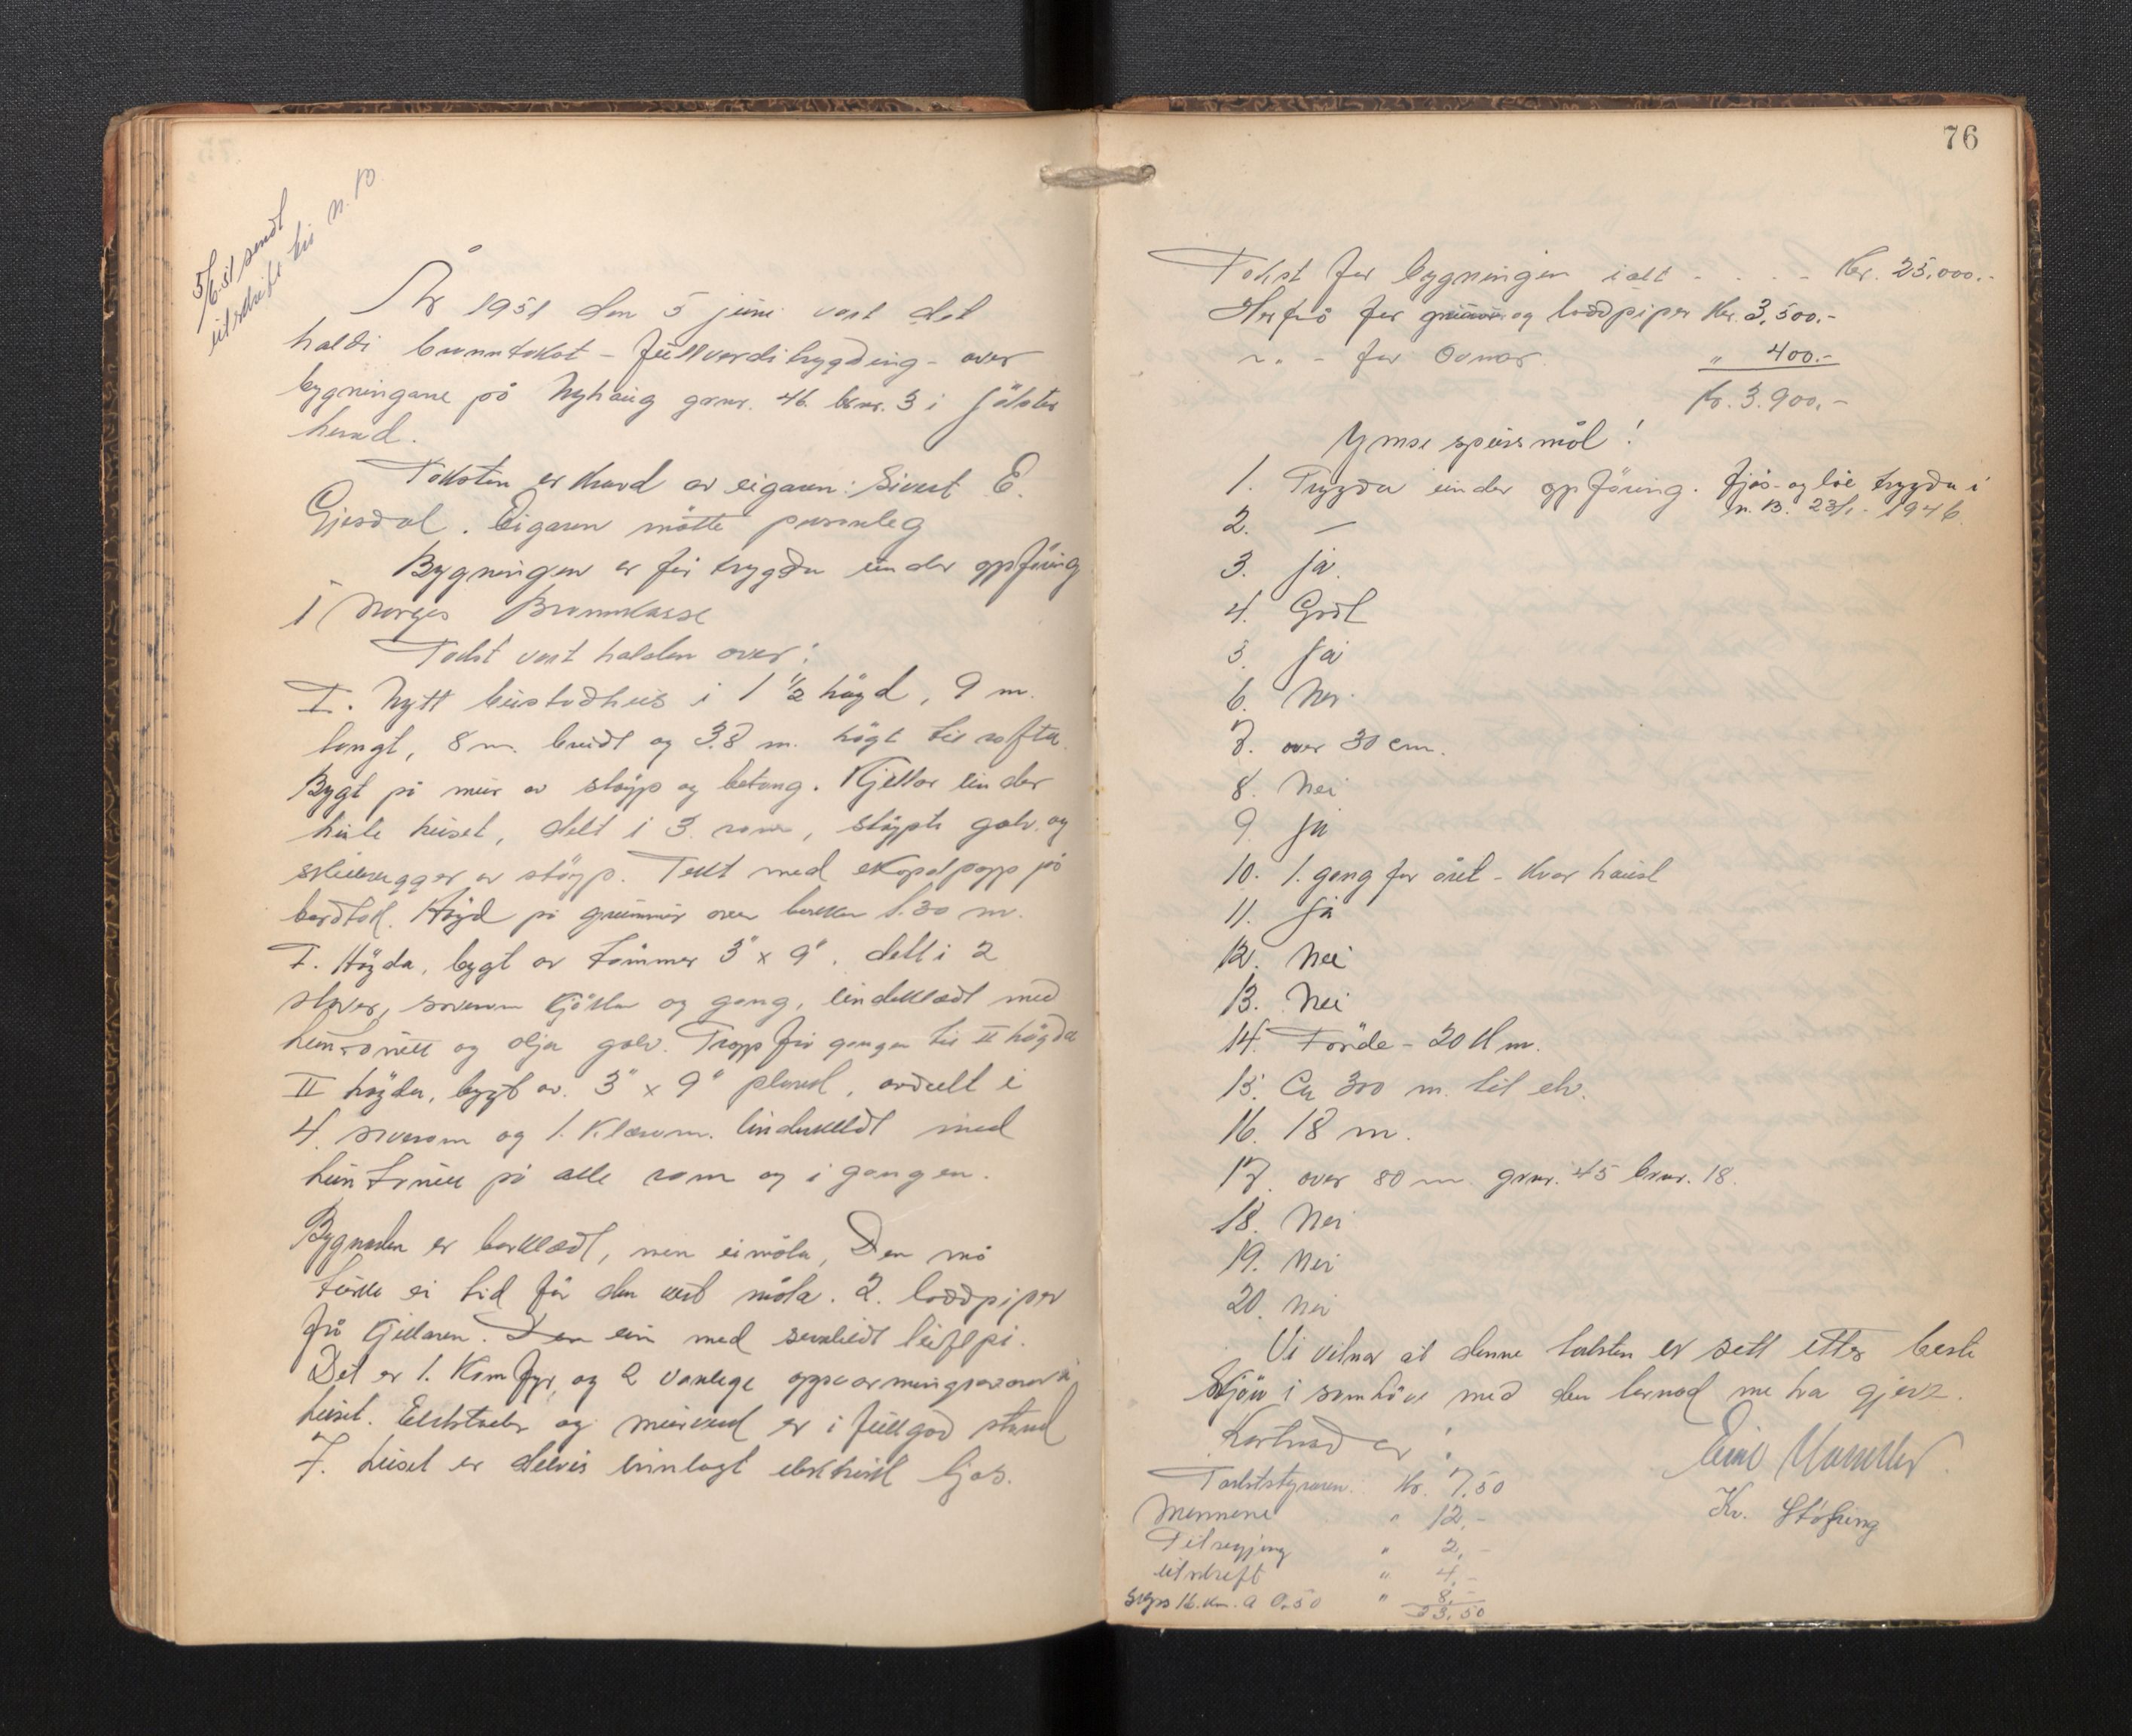 5/6.51 sendt
utskrift til N.B.
År 1951 den 5 juni vart det
haldi branntakst - fullverditrygding - over
bygningane på Nyhaug gnr. 46. bnr. 3 i Jølster
herad.
Taksten er kravd av eigaren: Sivert E.
Gjesdal. Eigaren møtte personleg
Bygningen er før trygda under oppføring
i Norges Brannkasse
Takst vart halden over:
I. Nytt bustadhus i 1 1/2 høgd, 9 m.
langt, 8 m. breidt og 3.8 m. høgt til rafta.
Bygt på mur av støyp og betong. Kjellar under
heile huset, delt i 3. rom, støypte golv. og
skillevegger av støyp. Tekt med papp på
bordtak. Høgd på grunnmur over bakken 1.30 m.
I. Høgda, bygt av tømmer 3" x 9". delt i 2
stover, soverom kjøken og gang, innklædt med
huntonitt og olja golv. Tropp frå gangen til II høgda
II høgda, bygt av. 3" x 9" plank, avdelt i
4. soverom og 1. Klærom. innklædt med
huntonitt på alle rom og i gangen.
Bygnaden er borklædt, men ei måla, Den må
turke ei tid før den vert måla. 2. loddpiper
frå kjellaren. Den ein med luftpi.
Det er 1. Komfyr, og 2 vanlege oppvarmingsovnar i
huset. Eldstader og murverk er i fullgod stand
I. huset er delvis innlagt elektrisk ljos.
76
Takst for bygningen i alt - . . - Kr. 25.000.-
Herfrå for grunnmur og loddpiper Kr. 3.500.-
- " - for Ovnar " 400.-
Kr. 3.900.-
Ymse spursmål!
1. Trygda under oppføring. Fjøs- og løe trygda i
N.B. 23/1 - 1946.
2. —
3. Ja.
4. Godt
5. Ja
6. Nei
7. over 30 cm.
8. Nei
9. Ja
10. 1. gang for året - kvar haust
11. Ja
12. Nei
13. Nei
14. Førde - 20 km.
15. Ca 300 m. til elv.
16. 18 m.
17. over 80 m. gnr. 45 bnr. 18.
18. Nei
19. Nei
20. Nei
Vi vitnar at denne taksten er sett etter beste
skjøn i samhøve med den lovnad me ha gjeve.
Kostnad er:
Takststyraren: Kr. 7.50
Mennene " 12,-
Tilsegjing " 2,-
utskrift " 4,-
Skyss 16. km. a 0.50 " 8,-
33,50
Kr. Støfring